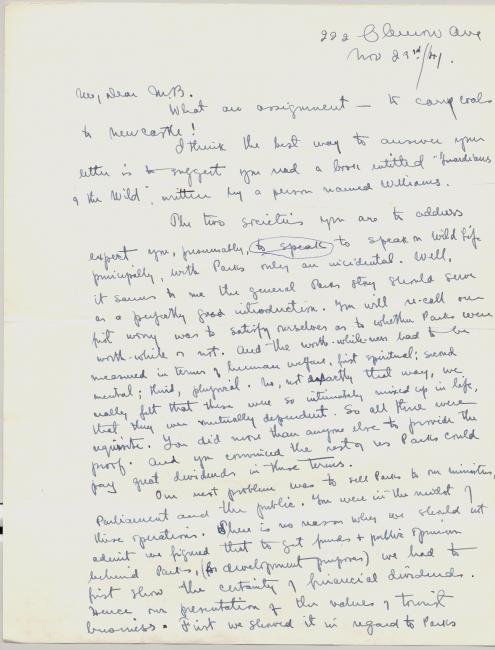 222 Clemow Ave
Nov 23rd/41.
My Dear M.B.
What an assignment — to carry coals
to Newcastle!
I think the best way to answer your
letter is to suggest you read a book entitled "Guardians
of the Wild", written by a person named Williams.
The two societies you are to address
expect you, presumably, to speak to speak on Wild Life
principally, with Parks only an incidental. Well,
it seems to me the general Parks story should serve
as a perfectly good introduction. You will re-call our
first worry was to satisfy ourselves as to whether Parks were
worth-while or not. And the worth-while-ness had to be
measured in terms of human welfare, first spiritual; second
mental; third, physical. No, not exactly that way, we
really felt that these were so intimately mixed up in life,
that they were mutually dependent. So all three were
requisite. You did more than anyone else to provide the
proof. And you convinced the rest of us Parks could
pay great dividends in these terms.
Our next problem was to sell Parks to our minister,
Parliament and the public. You were in the midst of
these operations. There is no reason why we should not
admit we figured that to get funds & public opinion
behind Parks, (for development purposes) we had to
first show the certainty of financial dividends.
Hence our presentation of the values of tourist
business. First we showed it in regard to Parks